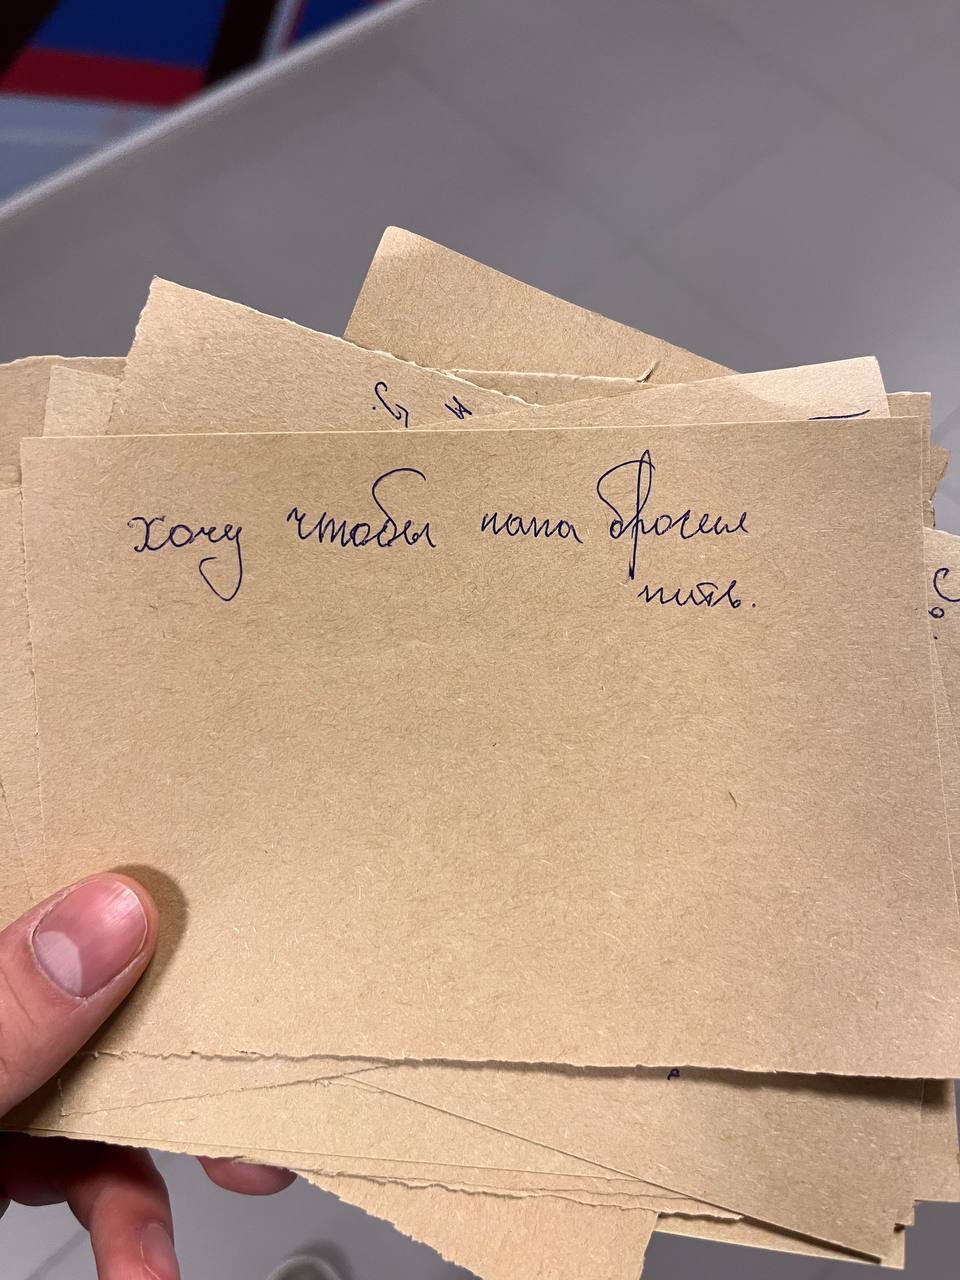 хочу чтобы папа бросил
пить.